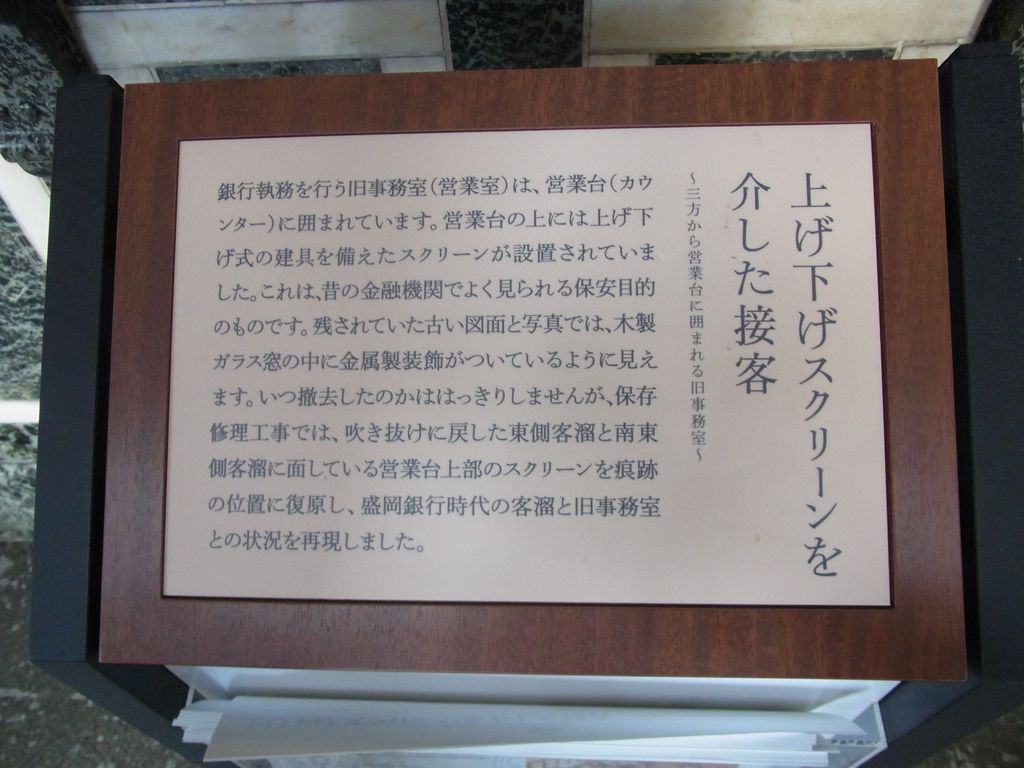 上げ下げスクリーンを
介した接客
～三方から営業台に囲まれる旧事務室～
銀行執務を行う旧事務室(営業室)は、営業台(カウ
ンター)に囲まれています。営業台の上には上げ下
げ式の建具を備えたスクリーンが設置されていま
した。これは、昔の金融機関でよく見られる保安目的
のものです。残されていた古い図面と写真では、木製
ガラス窓の中に金属製装飾がついているように見え
ます。いつ撤去したのかははっきりしませんが、保存
修理工事では、吹き抜けに戻した東側客溜と南東
側客溜に面している営業台上部のスクリーンを痕跡
の位置に復原し、盛岡銀行時代の客溜と旧事務室
との状況を再現しました。